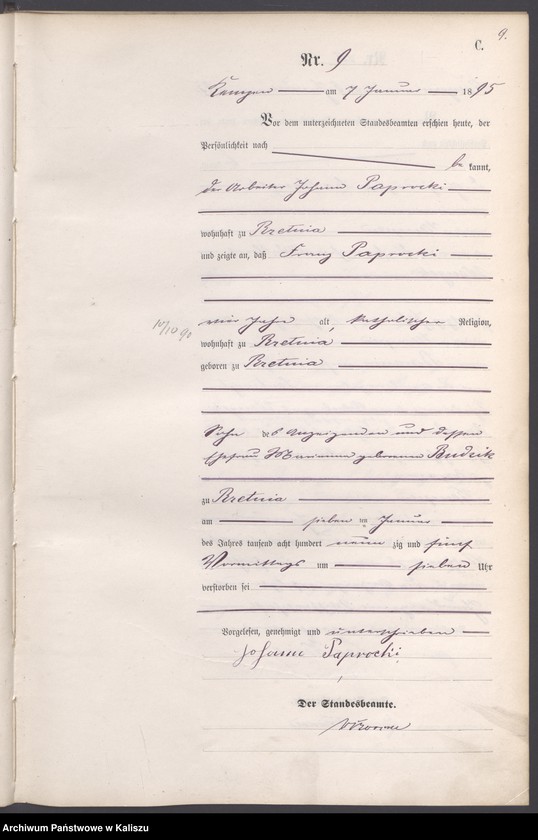 9.
C.
Nr. 9
Kempen am 7 Januar 1895
Vor dem unterzeichneten Standesbeamten erschien heute, der
Persönlichkeit nach
be kannt,
der Arbeiter Johann Paprocki
wohnhaft zu Rzetnia
und zeigte an, daß Franz Paprocki
vier Jahre alt, katholischer Religion,
10/10 90
wohnhaft zu Rzetnia
geboren zu Rzetnia
Sohn des Anzeigenden und dessen
Ehefrau Marianna geborenen Budzik
zu Rzetnia
am sieben ten Januar
des Jahres tausend acht hundert neun zig und fünf
Vormittags um sieben Uhr
verstorben sei
Vorgelesen, genehmigt und unterschrieben
Johann Paprocki
Der Standesbeamte.
Archiwum Państwowe w Kaliszu